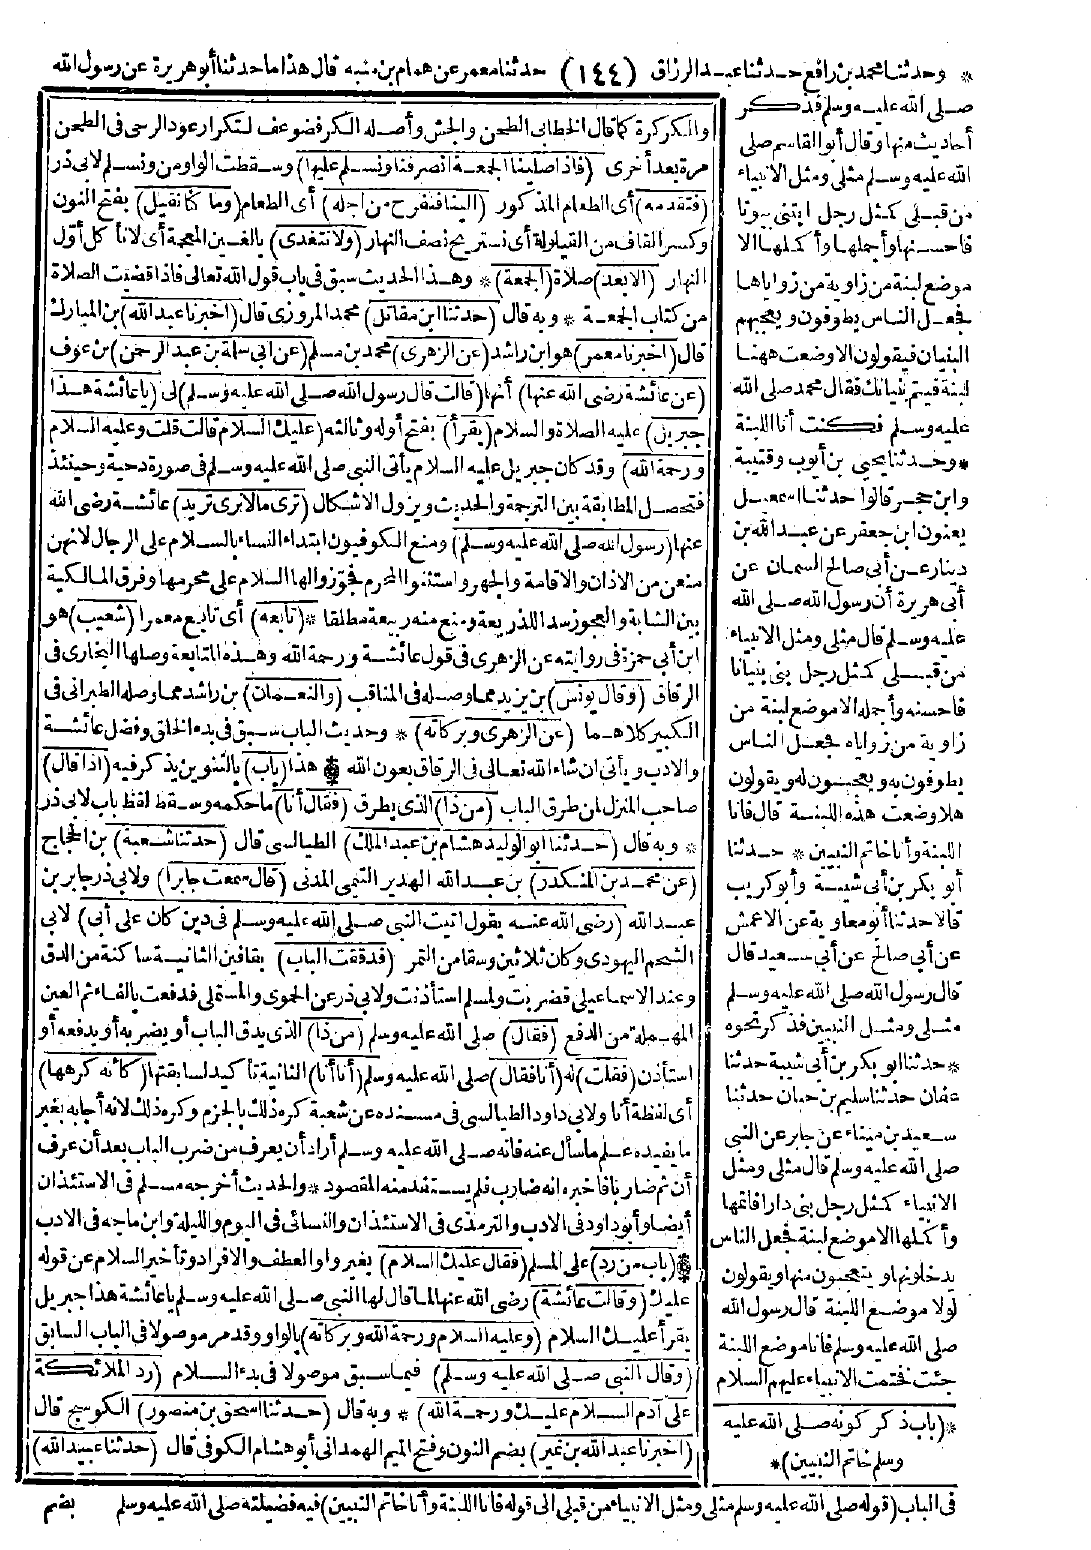 * وحدثنا محمد بن رافع حدثنا عبد الرزاق (١٤٤) حدثنا معمر عن همام بن منبه قال هذا ما حدثنا أبو هريرة عن رسول الله
صلى الله عليه وسلم فذكر
أحاديث منها وقال أبو القاسم صلى
الله عليه وسلم مثلى ومثل الانبياء
من قبلى كمثل رجل ابتنى بيوتا
فاحسنها وأجملها وأكملها الا
موضع لبنة من زاوية من زواياها
فجعل الناس يطوفون ويعجبهم
البنيان فيقولون الا وضعت ههنا
لبنة فيتم بنيانك فقال محمد صلى الله
عليه وسلم فكنت أنا اللبنة
* وحدثنا يحيى بن أيوب وقتيبة
وابن حجر قالوا حدثنا اسمعيل
يعنون ابن جعفر عن عبد الله بن
دينار عن أبى صالح السمان عن
أبى هريرة أن رسول الله صلى الله
عليه وسلم قال مثلى ومثل الانبياء
من قبلى كمثل رجل بنى بنيانا
فاحسنه وأجمله الا موضع لبنة من
زاوية من زواياه فجعل الناس
يطوفون به ويعجبون له ويقولون
هلا وضعت هذه اللبنة قال فانا
اللبنة وأنا خاتم النبيين * حدثنا
أبو بكر بن أبى شيبة وأبو كريب
قالا حدثنا أبو معاوية عن الاعمش
عن أبى صالح عن أبى سعيد قال
قال رسول الله صلى الله عليه وسلم
مثلى ومثل النبيين فذكر نحوه
* حدثنا أبو بكر بن أبى شيبة حدثنا
عفان حدثنا سليم بن حيان حدثنا
سعيد بن ميناء عن جابر عن النبى
صلى الله عليه وسلم قال مثلى ومثل
الانبياء كمثل رجل بنى دارا فاتمها
وأكملها الا موضع لبنة فجعل الناس
يدخلونها ويتعجبون منها ويقولون
لولا موضع اللبنة قال رسول الله
صلى الله عليه وسلم فانا موضع اللبنة
جئت فختمت الانبياء عليهم السلام
*(باب ذكر كونه صلى الله عليه
وسلم خاتم النبيين)*
والكركرة كما قال الخطابى الطحن والجش وأصله الكر فضوعف لتكرار عود الرحى فى الطحن
مرة بعد أخرى (فاذا صلينا الجمعة انصرفنا ونسلم عليها) وسقطت الواو من ونسلم لابى ذر
(فتقدمه) أى الطعام المذكور (الينا فنفرح من اجله) أى الطعام (وما كنا نقيل) بفتح النون
وكسر القاف من القيلولة أى نستريح نصف النهار (ولا نتغدى) بالغين المعجمة أى لانأكل أول
النهار (الا بعد) صلاة (الجمعة) * وهذا الحديث سبق فى باب قول الله تعالى فاذا قضيت الصلاة
من كتاب الجمعة * وبه قال (حدثنا ابن مقاتل) محمد المروزى قال (اخبرنا عبد الله) بن المبارك
قال (اخبرنا معمر) هو ابن راشد (عن الزهرى) محمد بن مسلم (عن ابى سلة بن عبد الرحمن) بن عوف
(عن عائشة رضى الله عنها) أنها (قالت قال رسول الله صلى الله عليه وسلم) لى (يا عائشة هذا
جبريل) عليه الصلاة والسلام (يقرأ) بفتح أوله وثالثه (عليك السلام قالت قلت وعليه السلام
ورحمة الله) وقد كان جبريل عليه السلام يأتى النبى صلى الله عليه وسلم فى صورة دحية وحينئذ
فتحصل المطابقة بين الترجمة والحديث ويزول الاشكال (ترى ما لا نرى تريد) عائشة رضى الله
عنها (رسول الله صلى الله عليه وسلم) ومنع الكوفيون ابتداء النساء بالسلام على الرجال لانهن
منعن من الاذان والاقامة والجهر واستثنوا المحرم فجوّزوا لها السلام على محرمها وفرق المالكية
بين الشابة والعجوز سد اللذريعة ومنع منه ربيعة مطلقا * (تابعه) أى تابع معمرا (شعيب) هو
ابن أبى حمزة فى روايته عن الزهرى فى قول عائشة ورحمة الله وهذه المتابعة وصلها البخارى فى
الرقاق (وقال يونس) بن يزيد مما وصله فى المناقب (والنعمان) بن راشد مما وصله الطبرانى فى
الكبير كلاهما (عن الزهرى وبركاته) * وحديث الباب سبق فى بدء الخلق وفضل عائشة
والادب ويأتى ان شاء الله تعالى فى الرقاق بعون الله * هذا (باب) بالتنوين يذكر فيه (اذا قال)
صاحب المنزل لمن طرق الباب (من ذا) الذى يطرق (فقال أنا) ما حكمه وسقط لفظ باب لابى ذر
* وبه قال (حدثنا ابو الوليد هشام بن عبد الملك) الطيالسى قال (حدثنا شعبة) بن الحجاج
(عن محمد بن المنكدر) بن عبد الله الهدير التيمى المدنى (قال سمعت جابرا) ولابى ذر جابر بن
عبد الله (رضى الله عنه يقول اتيت النبى صلى الله عليه وسلم فى دين كان على أبى) لابى
الشحم اليهودى وكان ثلاثين وسقا من التمر (فدققت الباب) بقافين الثانية ساكنة من الدق
وعند الاسماعيلى فضربت ولمسلم استأذنت ولابى ذر عن الحموى والمستملى فدفعت بالفاء ثم العين
المهملة من الدفع (فقال) صلى الله عليه وسلم (من ذا) الذى يدق الباب أو يضربه أو يدفعه أو
استأذن (فقلت) له (أنا فقال) صلى الله عليه وسلم (أنا أنا) الثانية تأكيد لسابقتها (كأنه كرهها)
أى لفظة أنا ولابى داود الطيالسى فى مسنده عن شعبة كره ذلك بالجزم وكره ذلك لانه أجابه بغير
ما يفيده علم ما سأل عنه فانه صلى الله عليه وسلم أراد أن يعرف من ضرب الباب بعد أن عرف
أن ثم ضاربا فاخبره انه ضارب فلم يستفد منه المقصود * والحديث أخرجه مسلم فى الاستئذان
أيضا وأبو داود فى الادب والترمذى فى الاستئذان والنسائى فى اليوم والليلة وابن ماجه فى الادب
* (باب من رد) على المسلم (فقال عليك السلام) بغير واو العطف والافراد وتأخير السلام عن قوله
عليك (وقالت عائشة) رضى الله عنها لما قال لها النبى صلى الله عليه وسلم يا عائشة هذا جبريل
يقرأ عليك السلام (وعليه السلام ورحمة الله وبركاته) بالواو وقد مر موصولا فى الباب السابق
(وقال النبى صلى الله عليه وسلم) فيما سبق موصولا فى بدء السلام (رد الملائكة
على آدم السلام عليك ورحمة الله) * وبه قال (حدثنا اسحق بن منصور) الكوسج قال
(اخبرنا عبد الله بن نمير) بضم النون وفتح الميم الهمدانى أبو هشام الكوفى قال (حدثنا عبيد الله)
فى الباب (قوله صلى الله عليه وسلم مثلى ومثل الانبياء من قبلى الى قوله فانا اللبنة وأنا خاتم النبيين) فيه فضيلته صلى الله عليه وسلم بضم